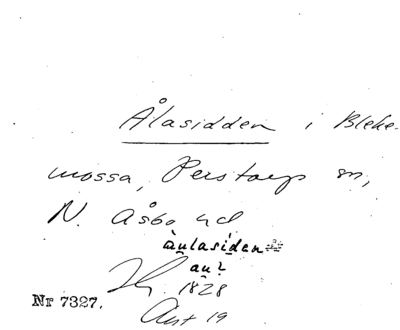 Ålasidden i Bleke-
mossa, Perstorp sn,
N. Åsbo hd
àulasiden
au?
1828
Nr 7327.
Ant 19